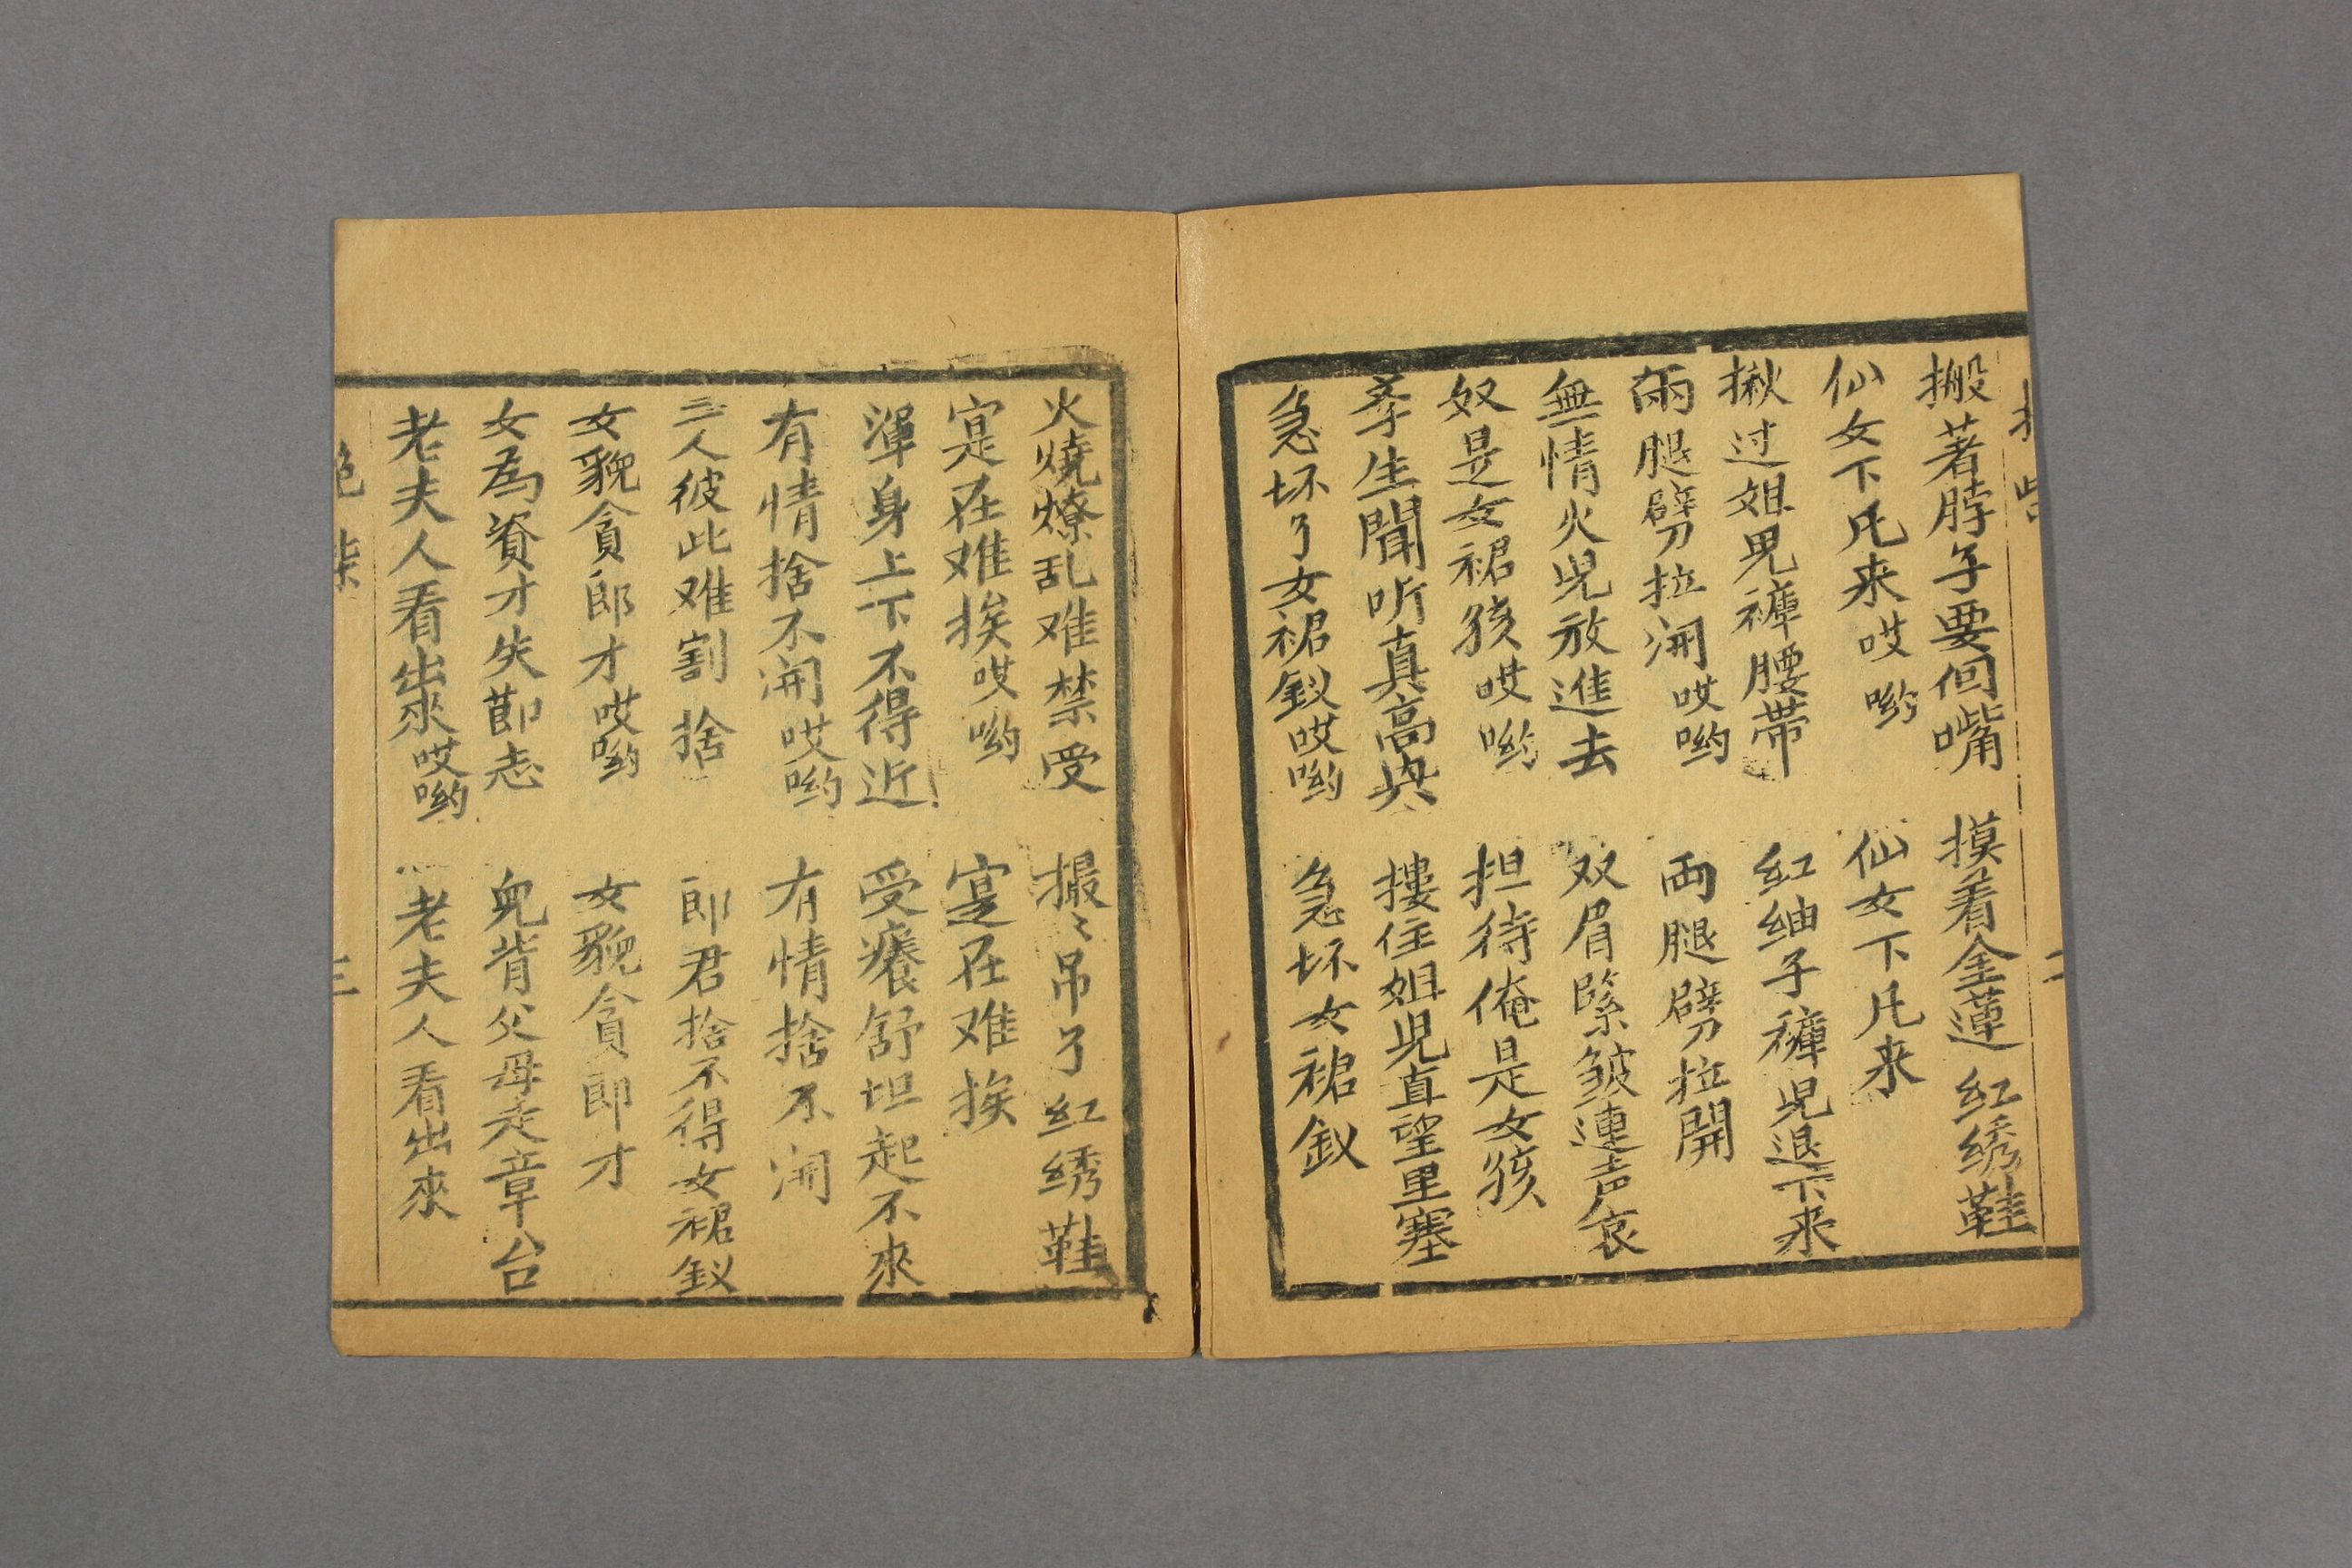 搬著脖子要回嘴　摸着金蓮红绣鞋
仙女下凡来哎哟　仙女下凡来
揪过姐児褲腰带　红紬子褲児退下来
兩腿劈拉開哎哟　両腿劈拉開
無情火児放進去　双眉緊皱連声哀
奴是女裙孩哎哟　担待俺是女孩
李生聞听真高兴　摟住姐児直望里塞
急坏了女裙釵哎哟　急坏女裙釵
火燒燎乱难禁受　撮〻吊了红绣鞋
寔在难挨哎哟　寔在难挨
渾身上下不得近　受癢舒坦起不來
有情捨不開哎哟　有情捨不開
二人彼此难割捨　郎君捨不得女裙釵
女貌貪郎才哎哟　女貌貪郎才
女為資才失節志　児背父母走章台
老夫人看出來哎哟　老夫人看出來
三